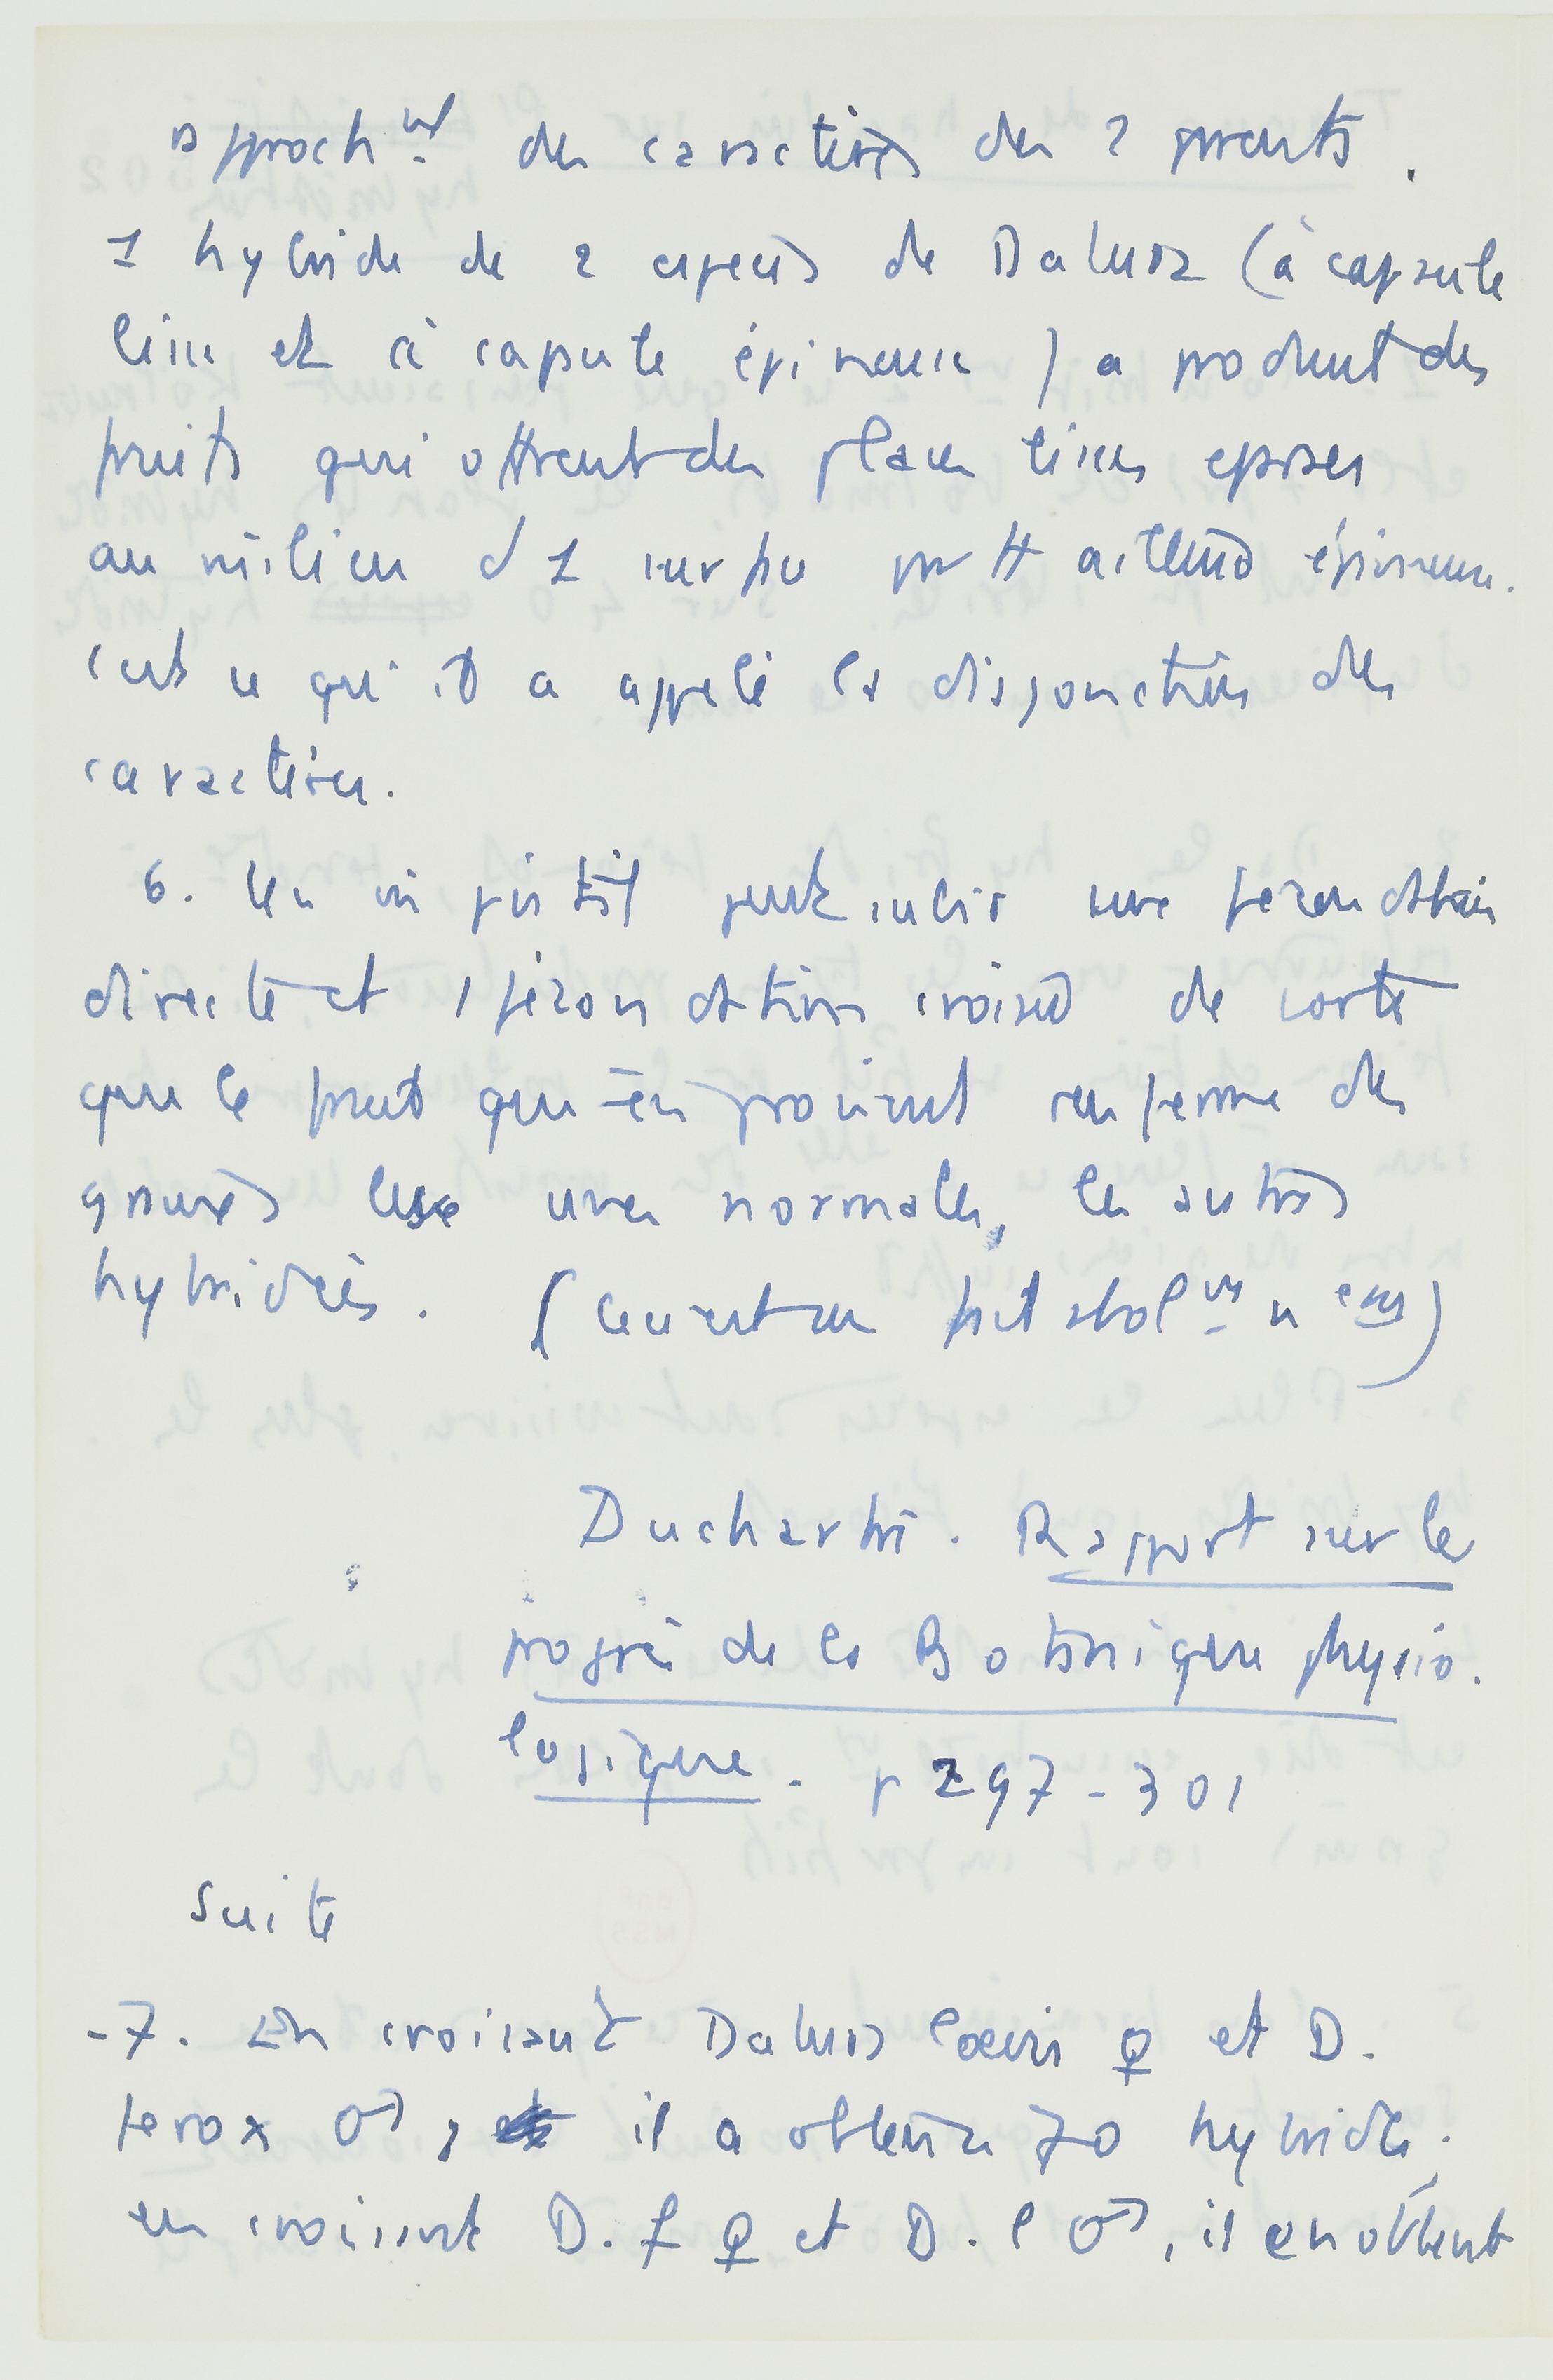 rapproch^nt des caractères des 2 parents.
1 hybride de 2 espèces de Datura (à capsule
lisse et à capsule épineuse) a produit des
fruits qui offrent des places lisses éparses
au milieu d'1 surface par tt ailleurs épineuse.
c'est ce qu'il a appelé la disjonction des
caractères.
6. Un m pistil peut subir une fécondation
directe et 1 fécondation croisée de sorte
que le fruit qui en provient renferme des
graines les unes normales, les autres
hybrides. (
Duchartre. Rapport sur les
progrès de la Botanique physio.
logique. p 297-301
suite
-7. En croisant Datura laevis ♀ et D.
ferox ♂, il a obtenu 70 hybrides.
en croisant D. f ♀ et D. l ♂, il en obtient